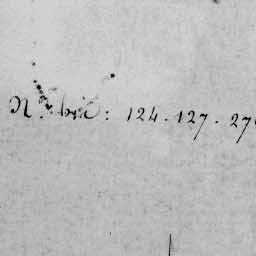 N. bis: 124. 127. 27